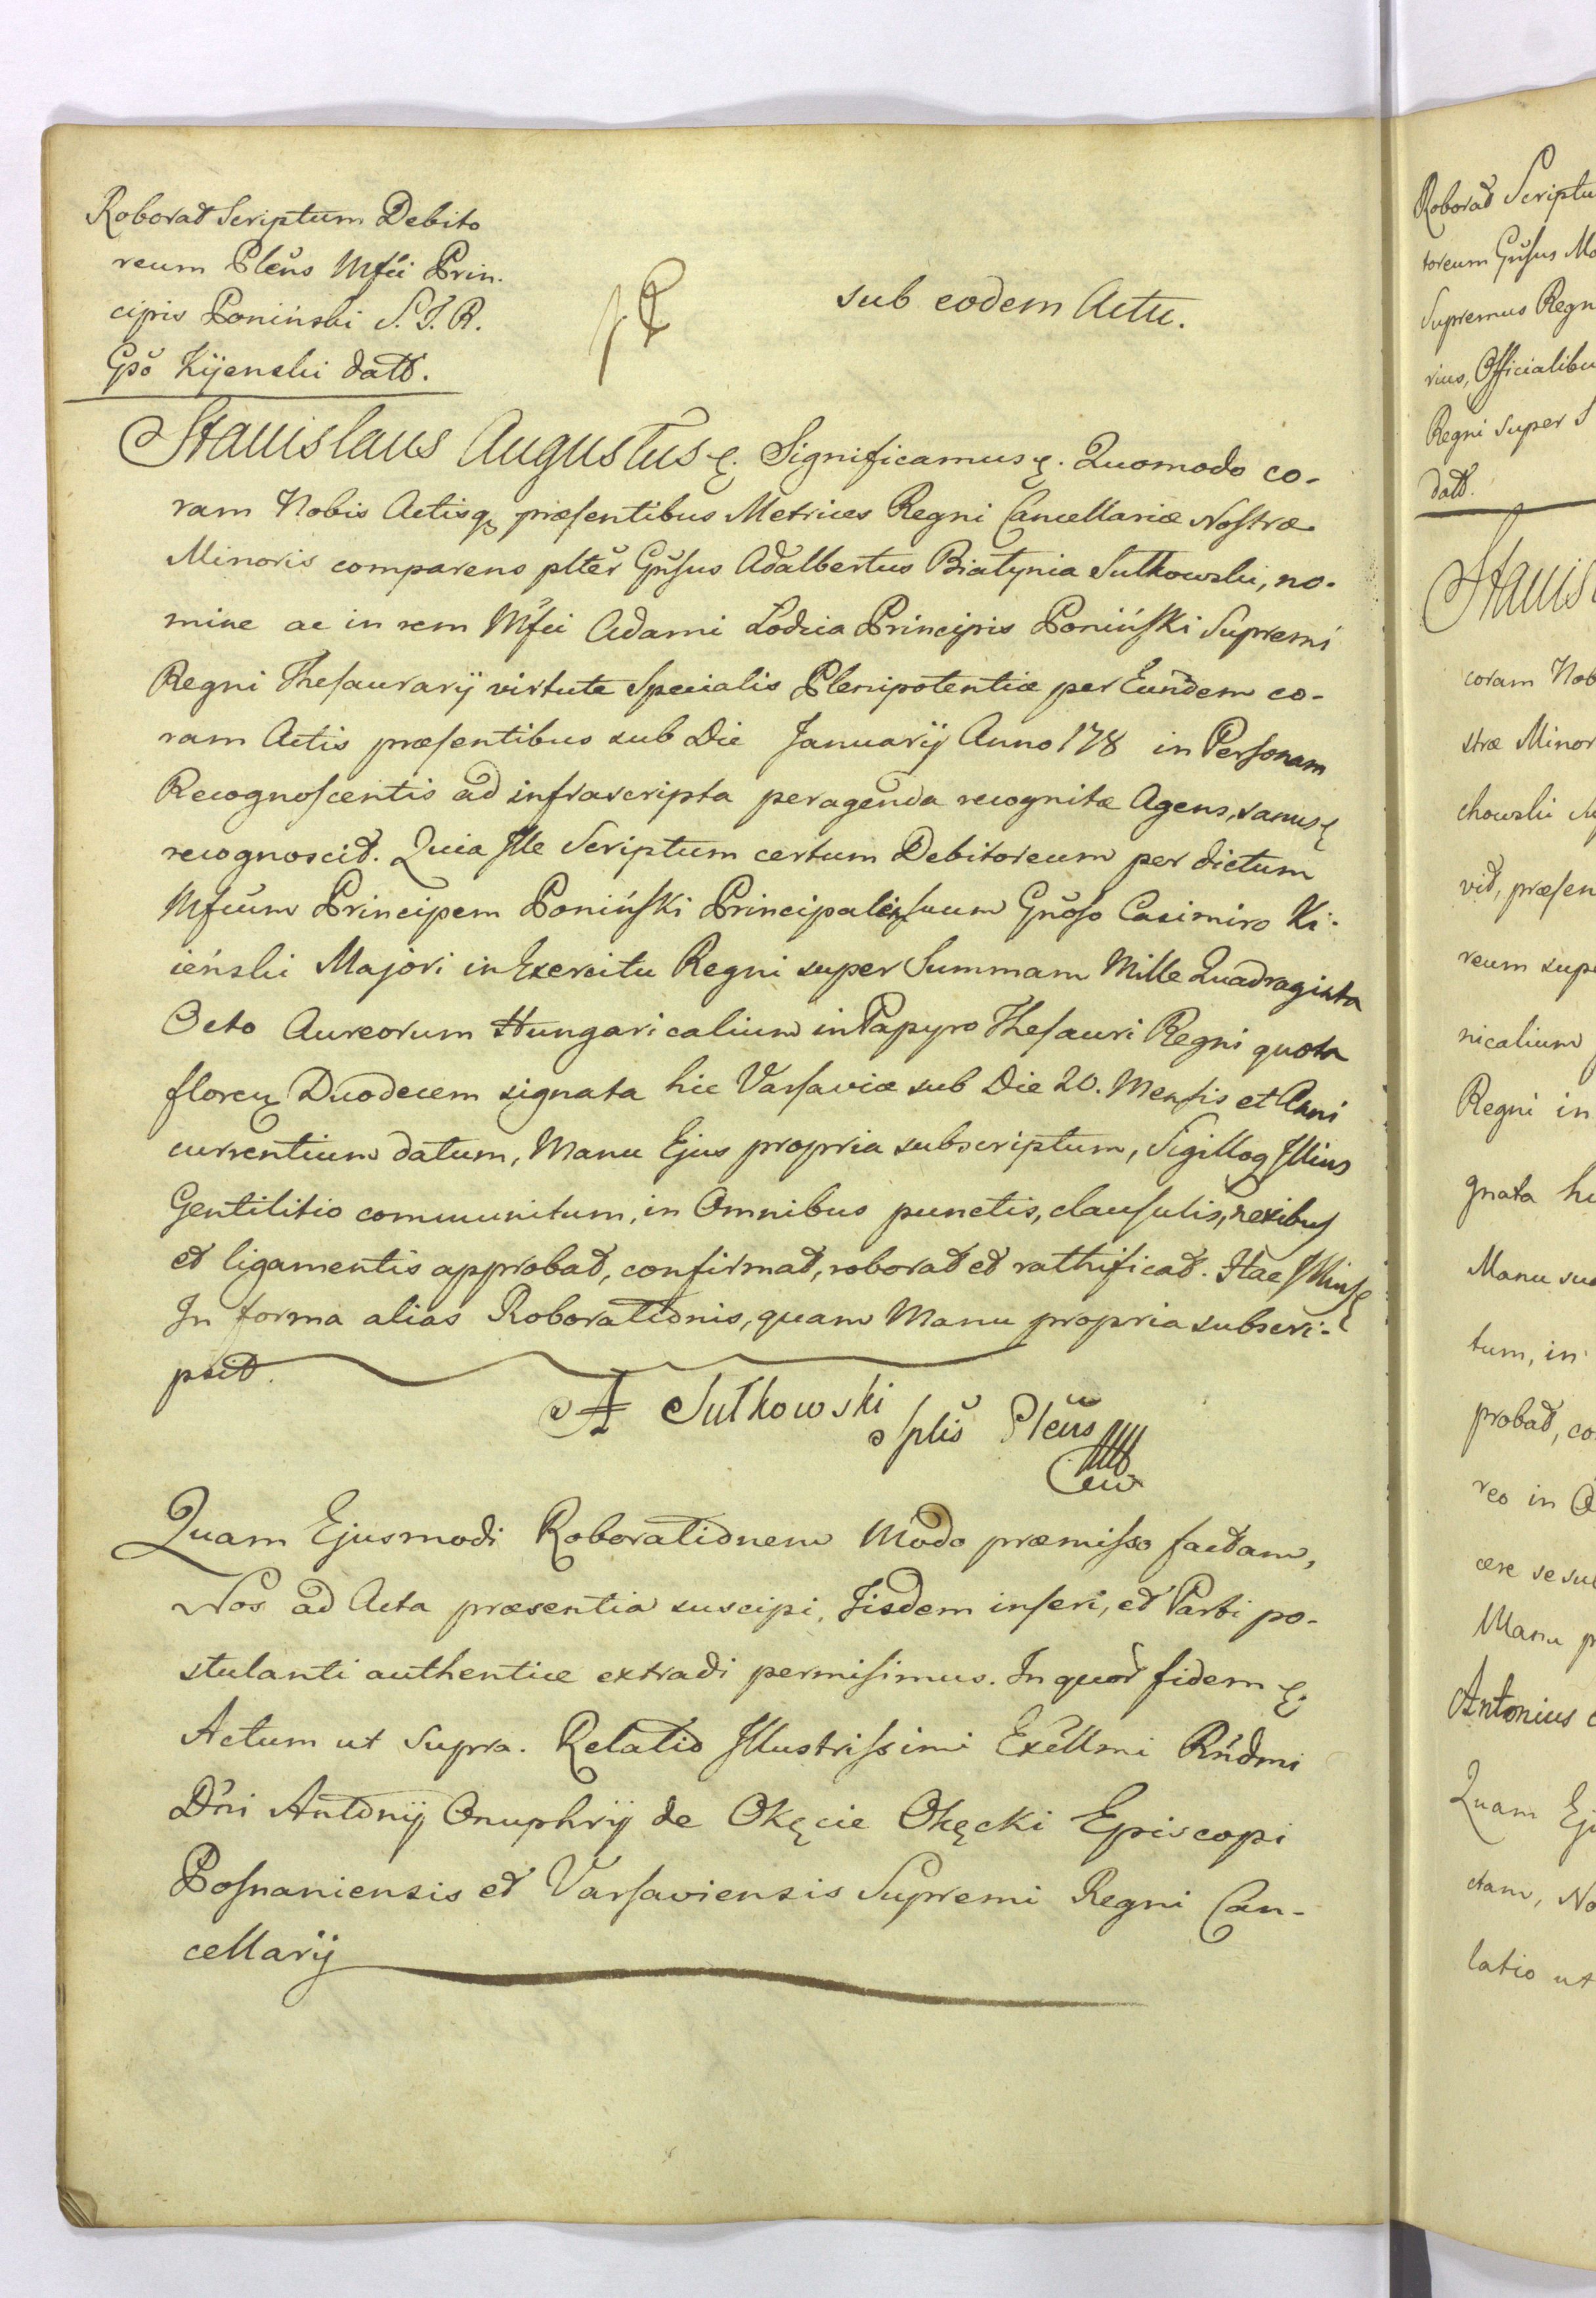 Roborat Scriptum Debito
reum Pleñs Mfci Prin.
cipis Poninski S. I. R.
Gso Kijenski datt.
sub eodem Actu.
Stanislaus Augustus &. Significamus &. Quomodo co-
ram Nobis Actisq præsentibus Metrices Regni Cancellariæ Nostræ
Minoris comparens plter Gnsus Adalbertus Białynia Sutkowski, no-
mine ac in rem Mfci Adami Lodzia Principis Poniński Supremi
Regni Thesaurarij virtute Specialis Plenipotentiæ per Eundem co-
ram Actis præsentibus sub Die Januarij Anno 178 in Personam
Recognoscentis ad infrascripta peragenda recognitæ Agens, sanus &
recognoscit. Quia Ille Scriptum certum Debitoreum per dictum
Mfcum Principem Poniński Principalem suum Gnoso Casimiro Ki-
ieński Majori in Exercitu Regni super Summam Mille Quadraginta
Octo Aureorum Hungaricalium in Papyro Thesauri Regni quota
floren Duodecem signata hic Varsaviæ sub Die 20. Mensis et Anni
currentium datum, Manu Ejus propria subscriptum, Sigilloq Illius
Gentilitio communitum, in Omnibus punctis, clausulis, nexibus
et ligamentis approbat, confirmat, roborat et rathificat. Hac Illius &
In forma alias Roborationis, quam Manu propria subscri-
psit.
A Sutkowski
splis Pleñs
Quam Ejusmodi Roborationem Modo præmisso factam,
Nos ad Acta præsentia suscipi, Iisdem inseri, et Parti po-
stulanti authentice extradi permisimus. In quor fidem &
Actum ut Supra. Relatio Illustrissimi Excllmi Rndmi
Dni Antonij Onuphrij de Okęcie Okęcki Episcopi
Posnaniensis et Varsaviensis Supremi Regni Can-
cellarij
Roborat Scriptu
toreum Gnsus Mo
Supremus Regn
rius, Officialibu
Regni super S
datt.
Stanisl
coram Nob
stræ Minor
chowski
vit, præsen
reum supe
nicalium
Regni in
gnata hi
Manu su
tum, in
probat, co
reo in
cere se su
Manu p
Antonius
Quam Ej
ctam, No
latio ut